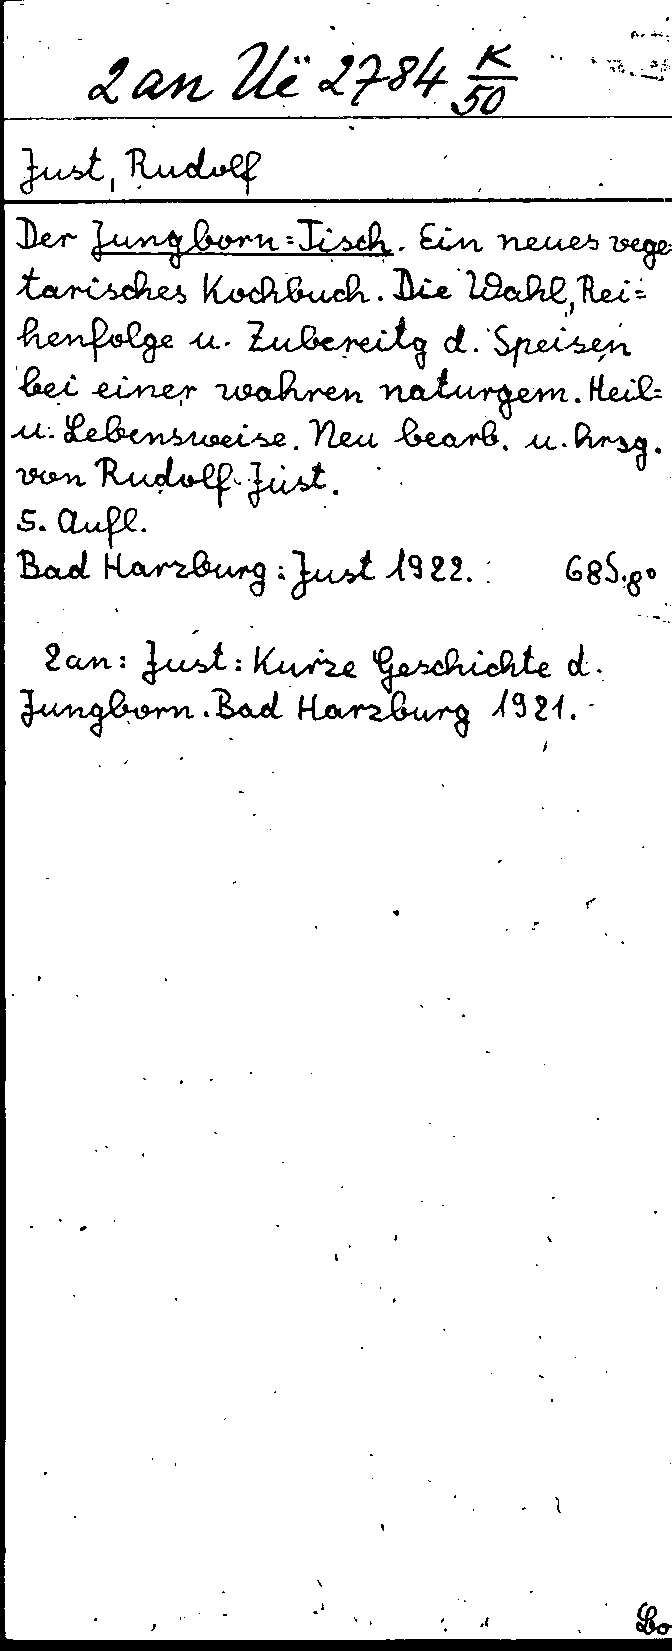 2 an Uë 2784 K/50
Just, Rudolf
Der Jungborn=Tisch. Ein neues vege
tarisches Kochbuch. Die Wahl, Rei=
henfolge u. Zubereitg d. Speisen
bei einer wahren naturgem. Heil=
u. Lebensweise. Neu bearb. u. hrsg.
von Rudolf Just.
5. Aufl.
Bad Harzburg: Just 1922. 68 S. 8°
2 an: Just: Kurze Geschichte d.
Jungborn. Bad Harzburg 1921.
Lo